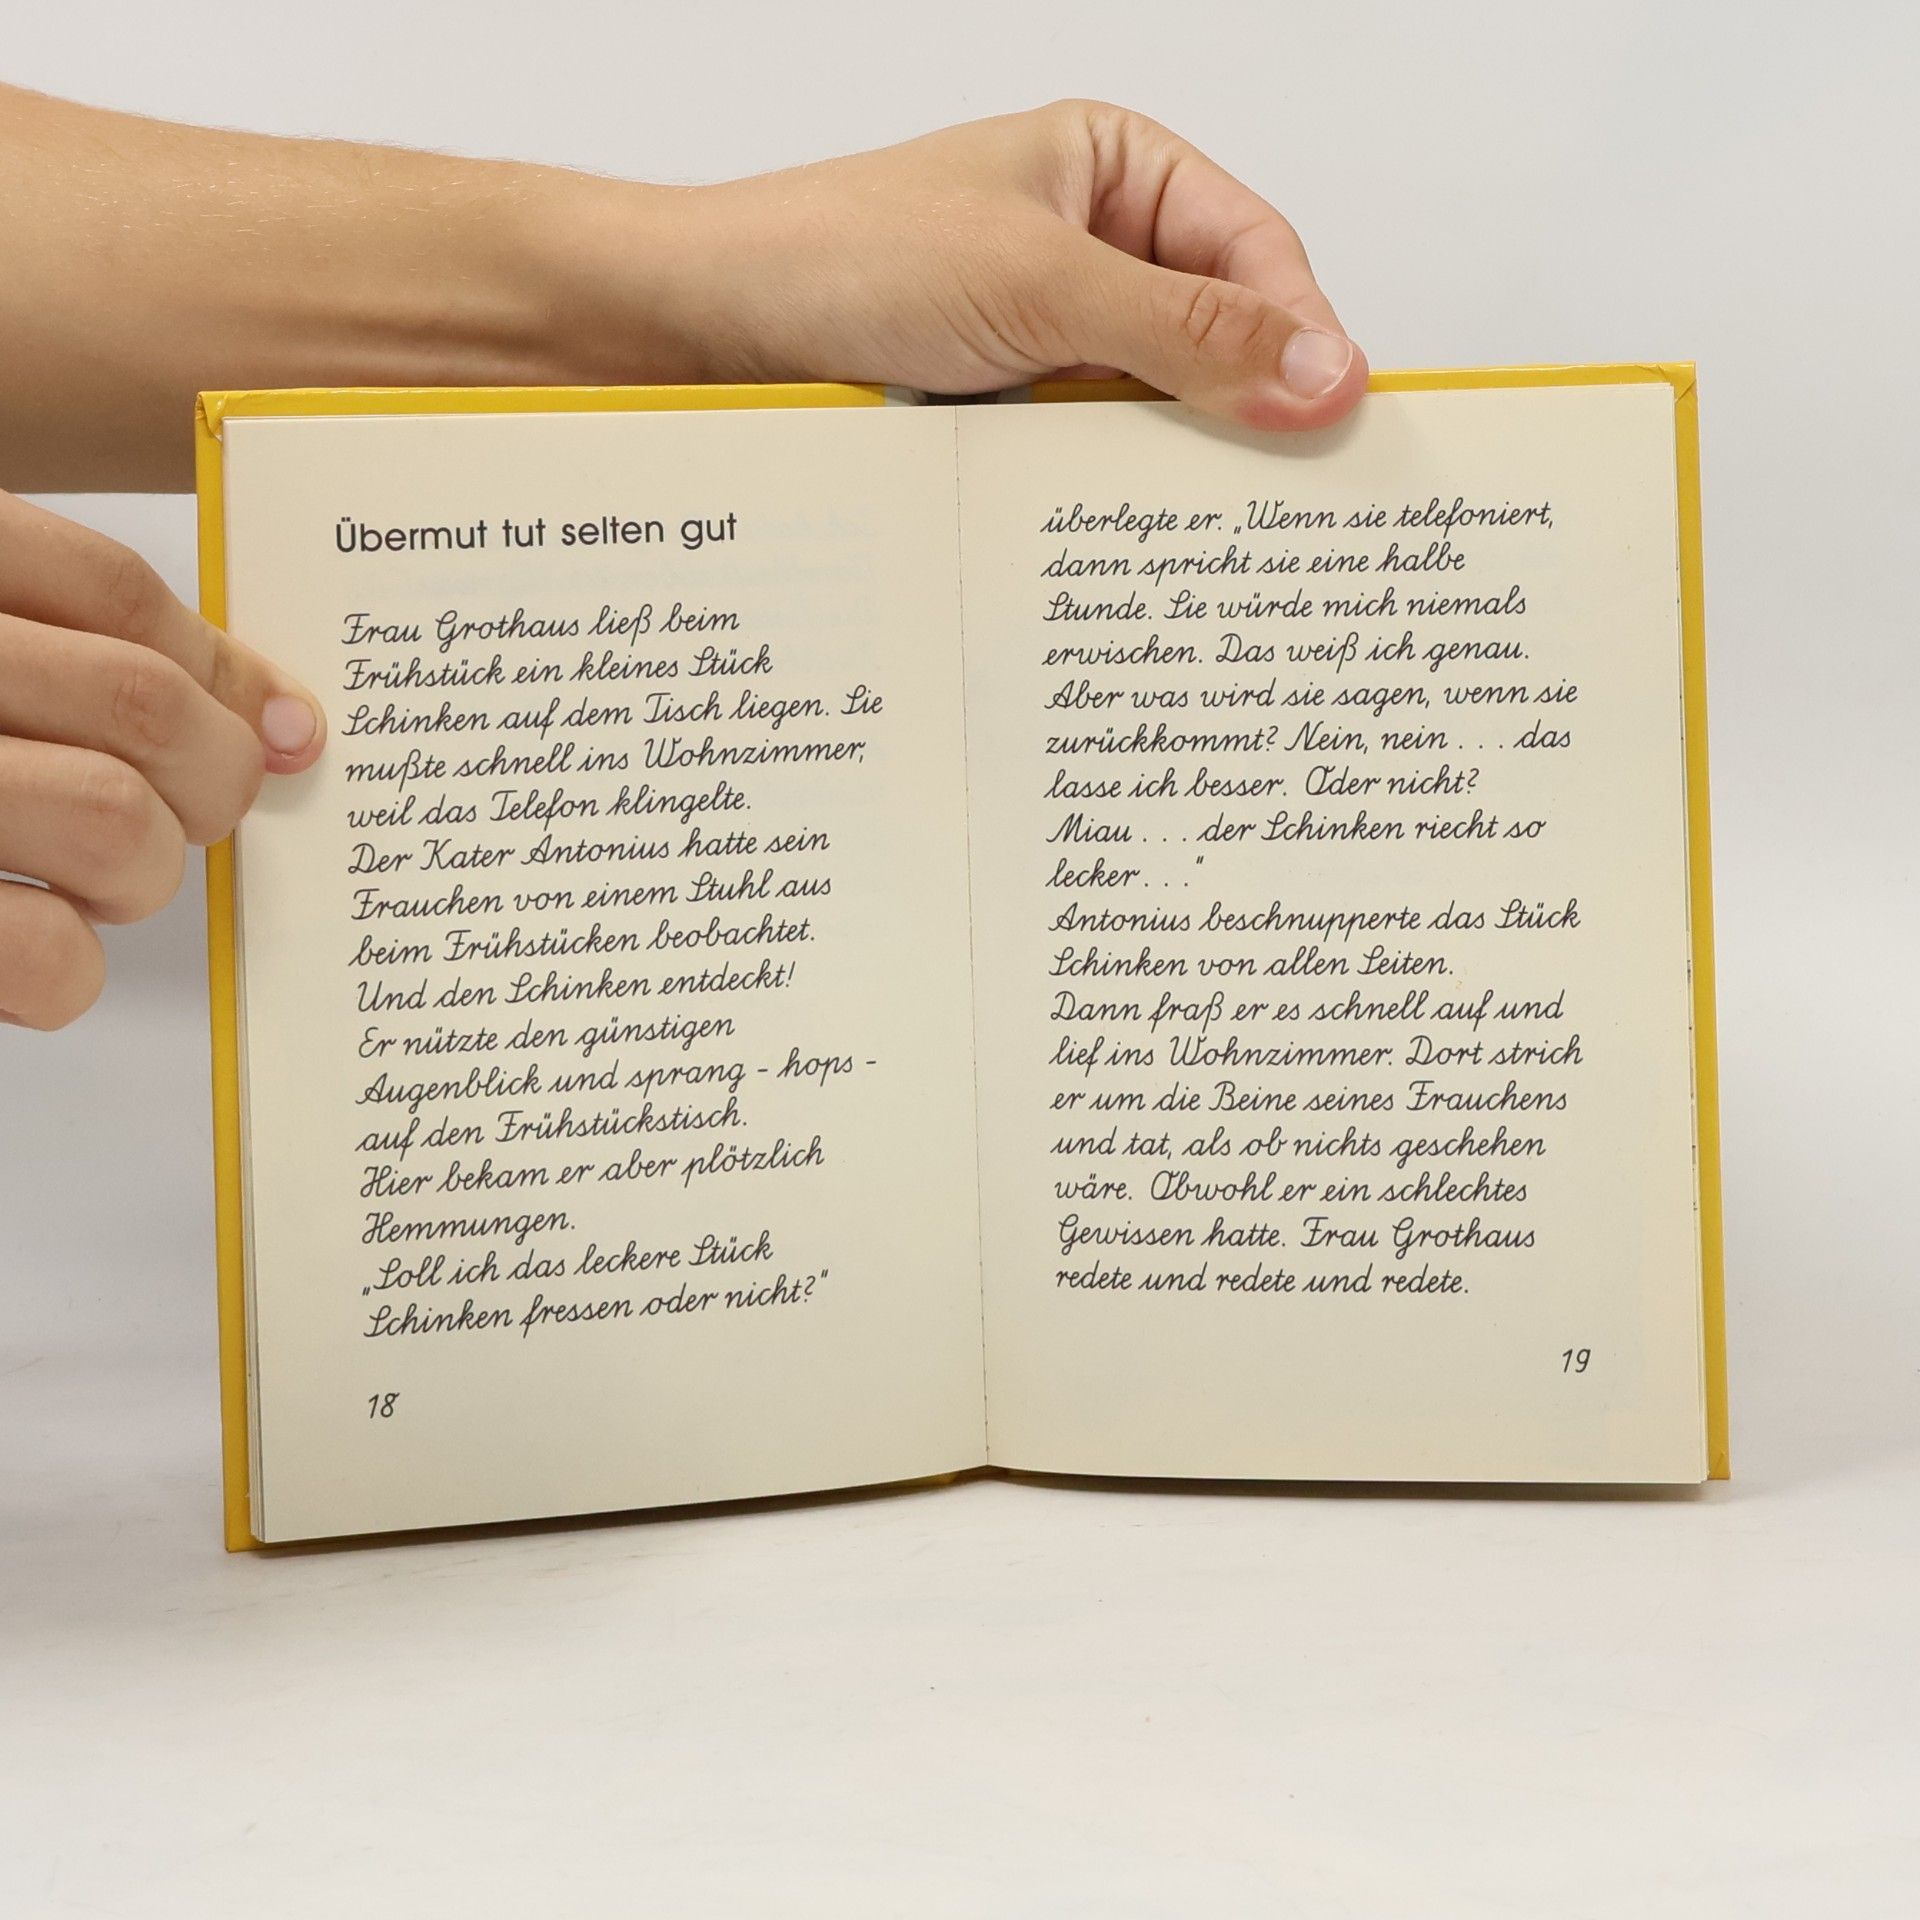 Übermut tut selten gut
Frau Grothaus ließ beim
Frühstück ein kleines Stück
Schinken auf dem Tisch liegen. Sie
mußte schnell ins Wohnzimmer,
weil das Telefon klingelte.
Der Kater Antonius hatte sein
Frauchen von einem Stuhl aus
beim Frühstücken beobachtet.
Und den Schinken entdeckt!
Er nützte den günstigen
Augenblick und sprang - hops -
auf den Frühstückstisch.
Hier bekam er aber plötzlich
Hemmungen.
„Soll ich das leckere Stück
Schinken fressen oder nicht?"
18
überlegte er. „Wenn sie telefoniert,
dann spricht sie eine halbe
Stunde. Sie würde mich niemals
erwischen. Das weiß ich genau.
Aber was wird sie sagen, wenn sie
zurückkommt? Nein, nein . . . das
lasse ich besser. Oder nicht?
Miau . . . der Schinken riecht so
lecker . . ."
Antonius beschnupperte das Stück
Schinken von allen Seiten.
Dann fraß er es schnell auf und
lief ins Wohnzimmer. Dort strich
er um die Beine seines Frauchens
und tat, als ob nichts geschehen
wäre. Obwohl er ein schlechtes
Gewissen hatte. Frau Grothaus
redete und redete und redete.
19